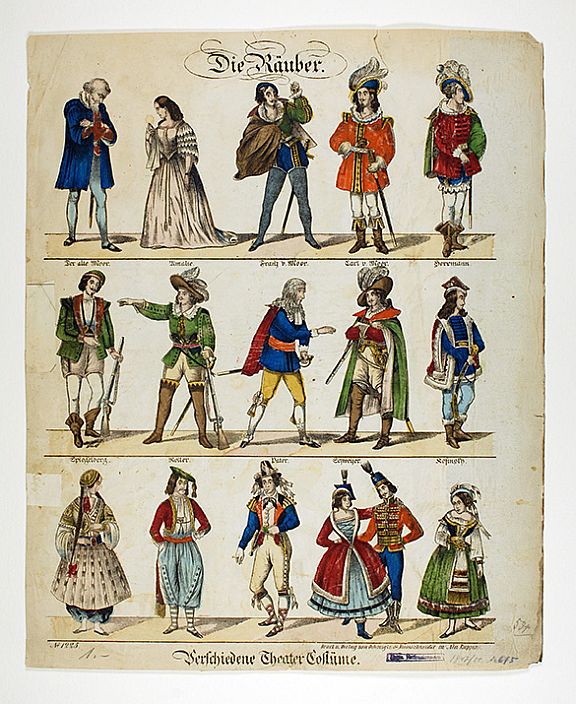 Die Räuber.
Der alte Moor. Amalie. Franz v. Moor. Carl v. Moor. Herrmann.
Spiegelberg. Roller. Pater. Schweizer. Kosinsky.
No 1225 Druck u. Verlag von Oehmigke & Riemschneider in Neu Ruppin
1.-
Verschiedene Theater Costüme.